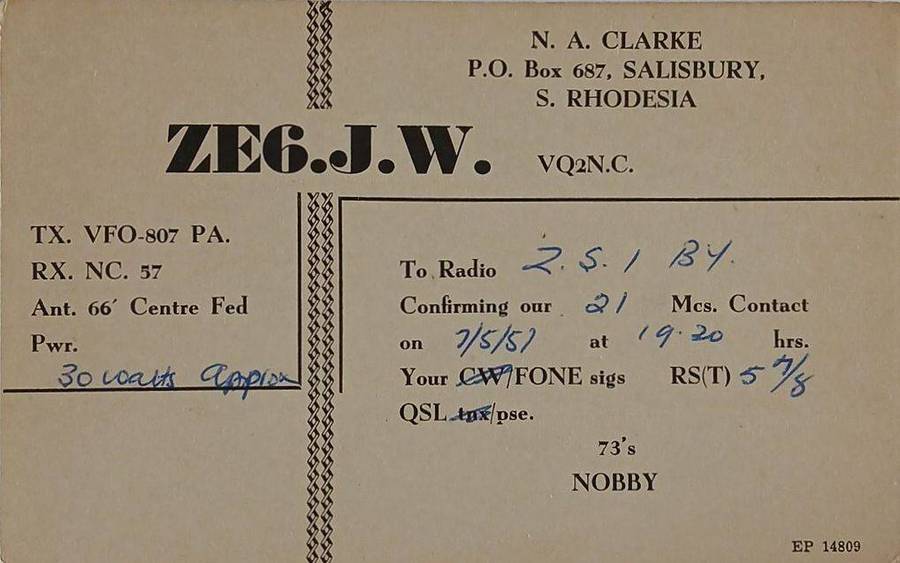 N. A. CLARKE
P.O. Box 687, SALISBURY,
S. RHODESIA
ZE6.J.W. VQ2N.C.
TX. VFO-807 PA.
RX. NC. 57
Ant. 66′ Centre Fed
Pwr.
30 watts Approx
To Radio Z.S.1 BY.
Confirming our 21 Mcs. Contact
on 7/5/57 at 19.20 hrs.
Your CW/FONE sigs RS(T) 5 7/8
QSL tnx/pse.
73's
NOBBY
EP 14809